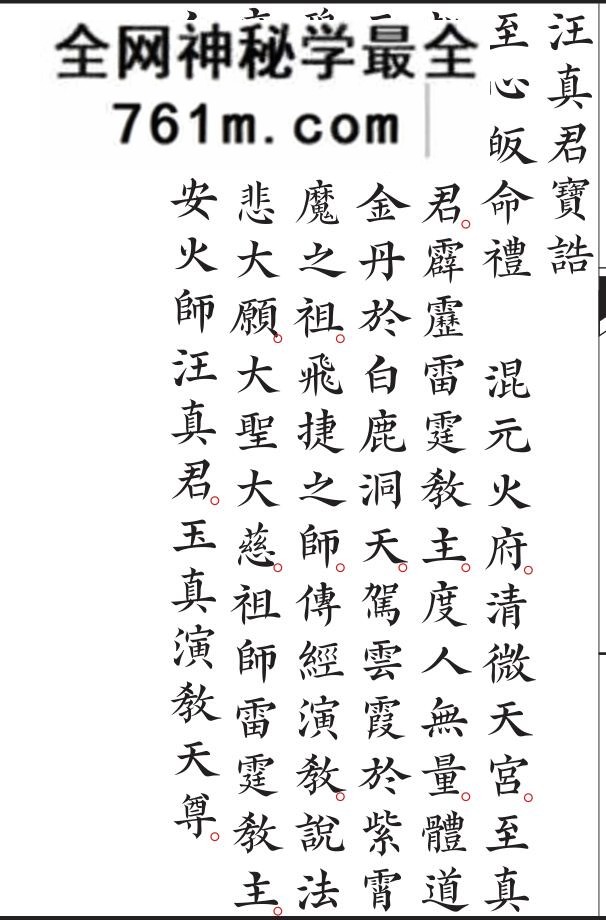 全网神秘学最全
761m.com
汪真君寶誥
至心皈命禮　混元火府。清微天宮。至真
君。霹靂雷霆教主。度人無量。體道
金丹於白鹿洞天。駕雲霞於紫霄
魔之祖。飛捷之師。傳經演教。說法
悲大願。大聖大慈。祖師雷霆教主。
安火師汪真君。玉真演教天尊。